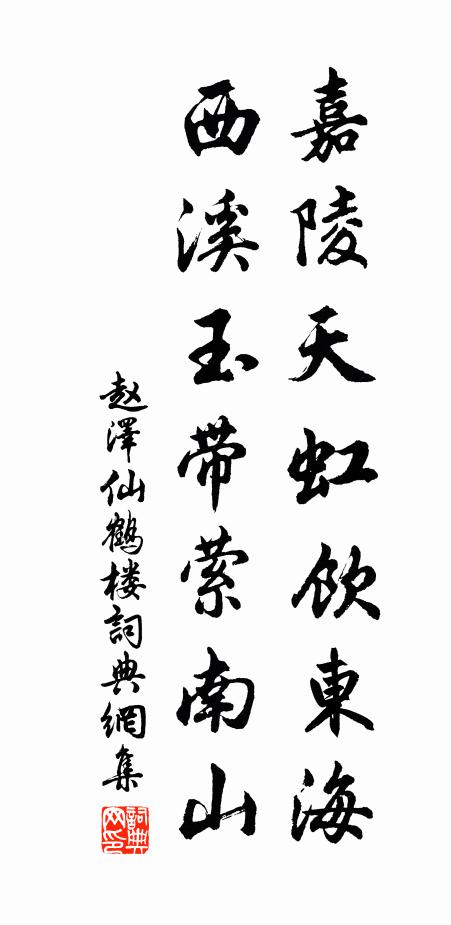 嘉陵天虹饮東海
西溪玉带萦南山
赵澤仙鹤楼詞典網集
詞典网印